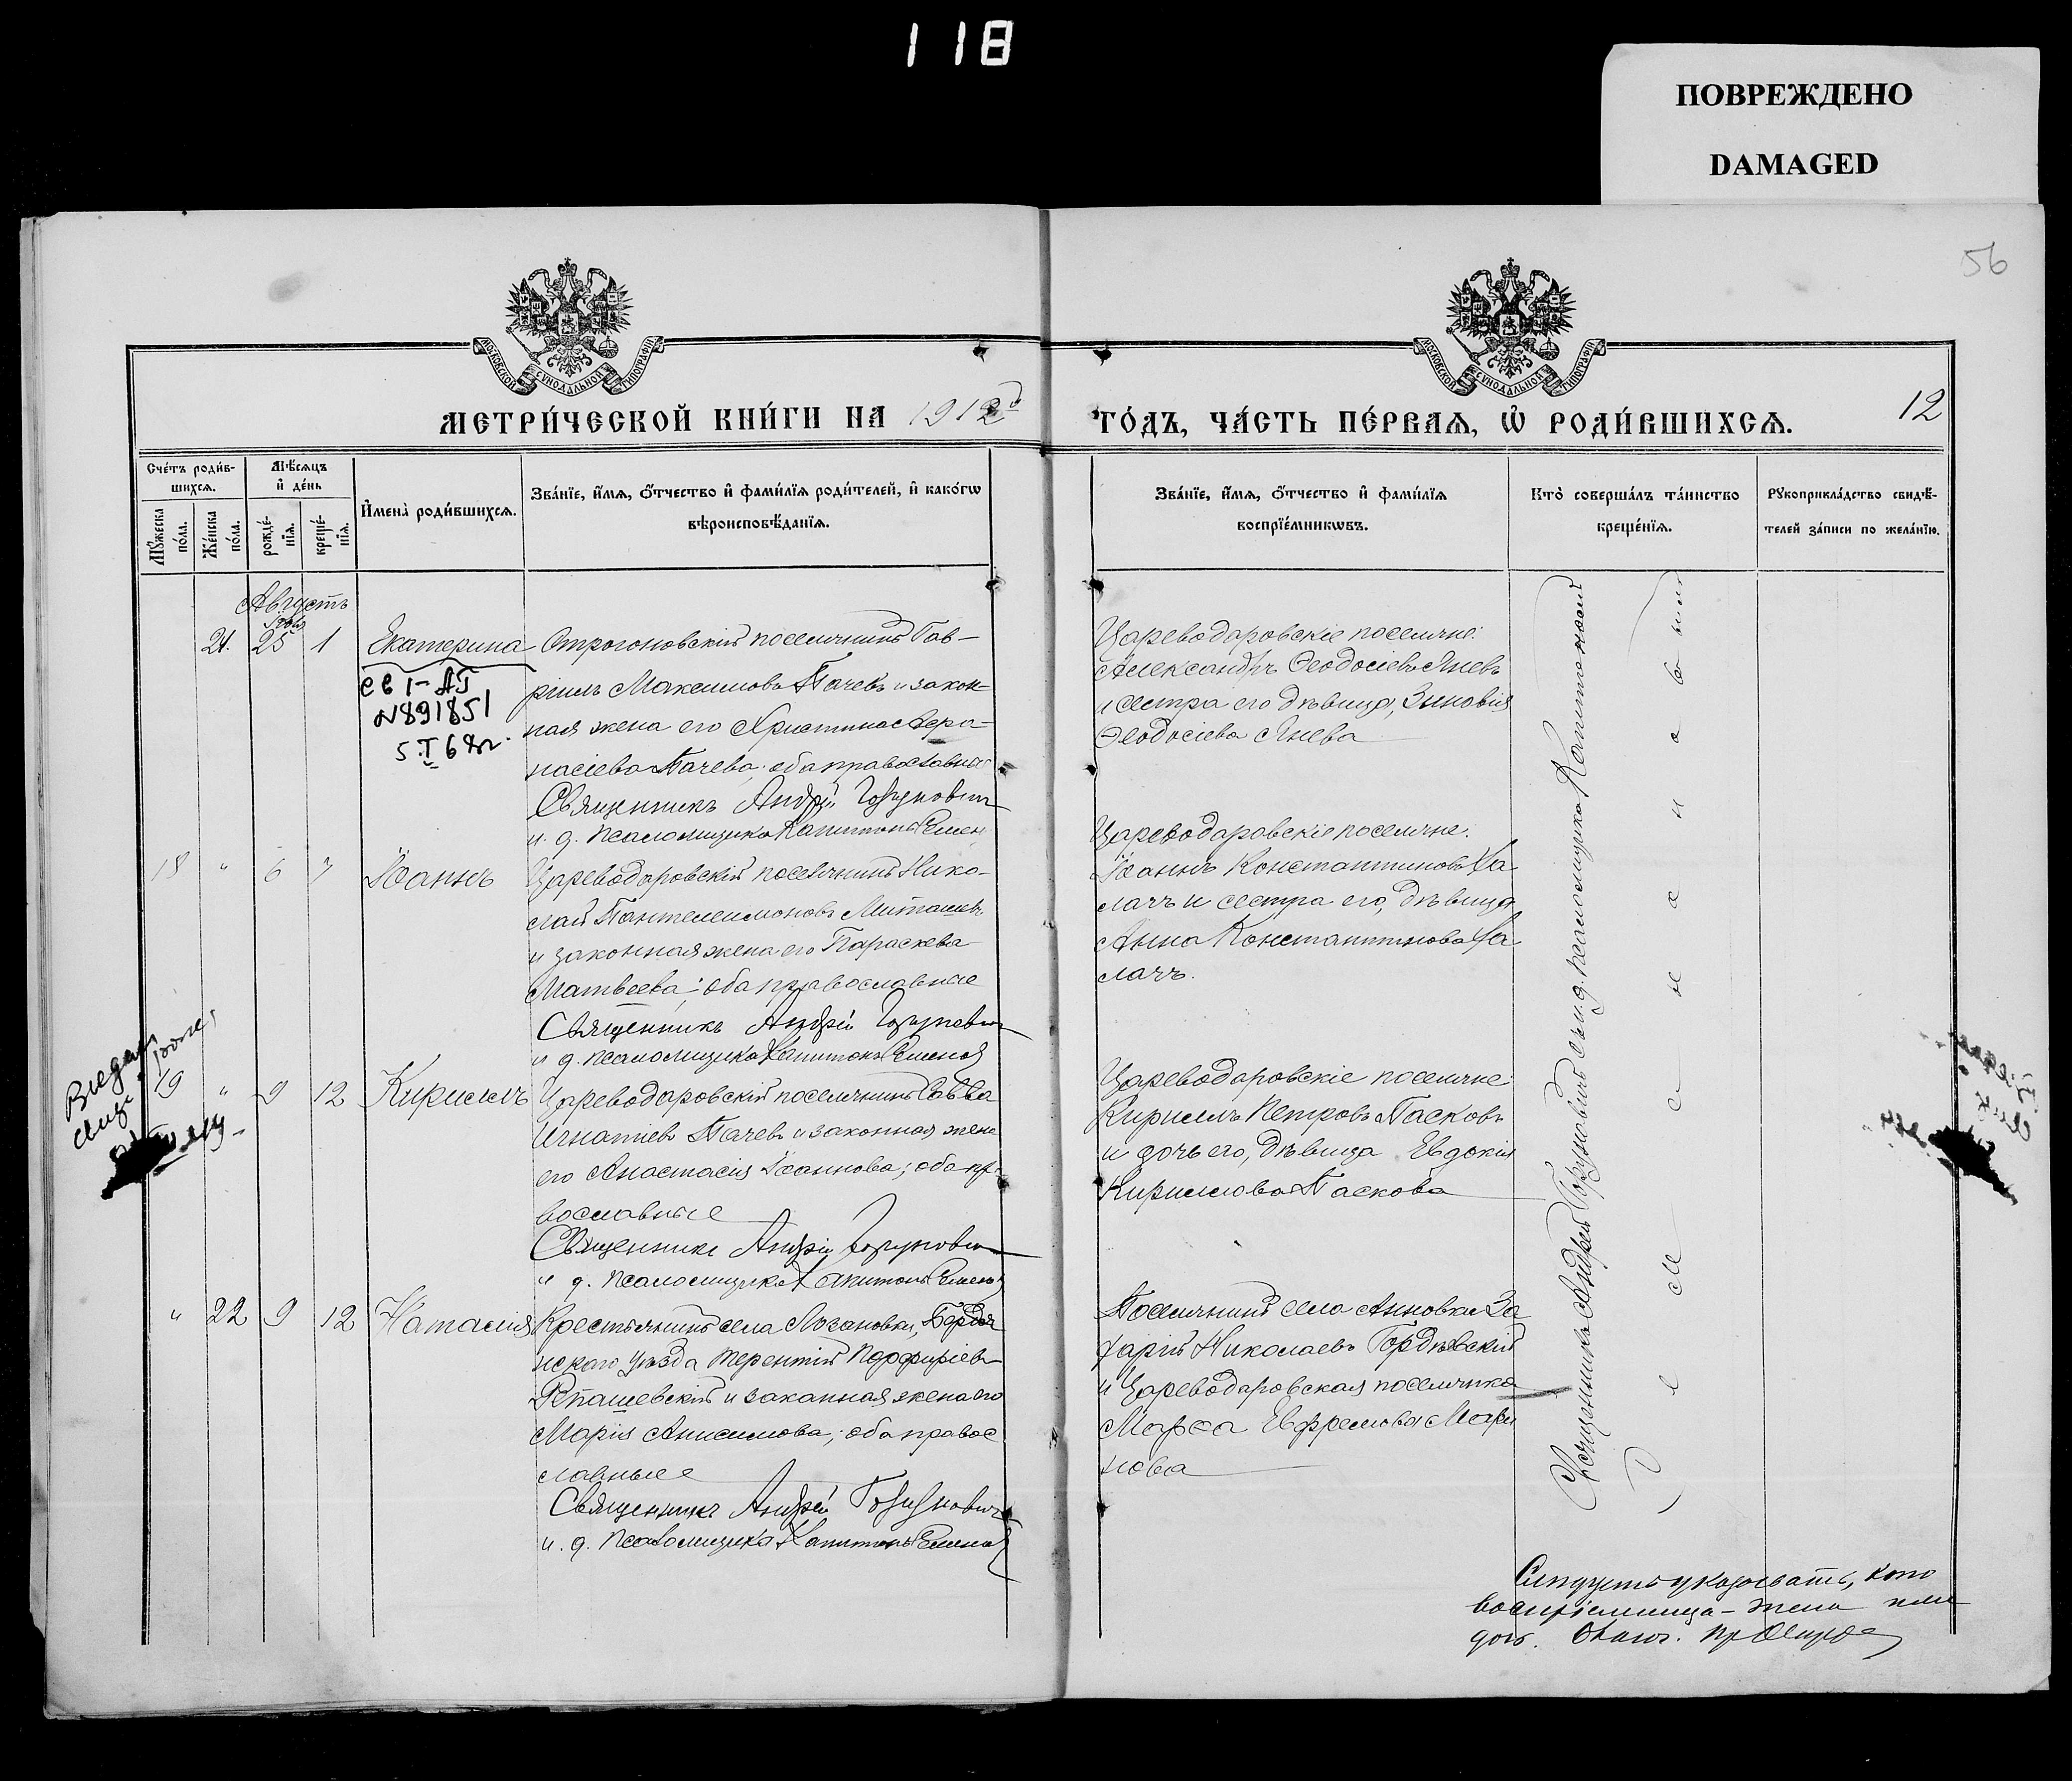 118
ПОВРЕЖДЕНО
DAMAGED
56
МОСКОВСКОЙ СУНОДАЛЬНОЙ ТИПОГРАФІИ
МОСКОВСКОЙ СУНОДАЛЬНОЙ ТИПОГРАФІИ
МЕТРИ́ЧЕСКОЙ КНИ́ГИ НА 1912
ГО́ДЪ, ЧА́СТЬ ПЕ́РВАѦ, Ѡ҆ РОДИ́ВШИХСѦ.
12
Счéтъ роди́в-
шихсѧ.
Мѣ́сѧцъ
и҆ де́нь
Мꙋ́жеска по́ла.
Же́нска по́ла.
рожде́-
нїѧ.
креще́-
нїѧ.
И҆мена̀ роди́вшихсѧ.
Зва́нїе, и҆́мѧ, ѻ҆́тчество и҆ фами́лїѧ роди́телей, и҆ како́гѡ
вѣроисповѣ́данїѧ.
Зва́нїе, и҆́мѧ, ѻ҆́тчество и҆ фами́лїѧ
воспрїе́мникѡвъ.
Кто̀ соверша́лъ та́инство
креще́нїѧ.
Рꙋкоприкла́дство свидѣ́-
телей за́писи по жела́нїю.
Августъ
21. 25 1 Екатерина Строгоновскій поселянинъ Гав-
ріилъ Максимовъ Тачевъ и закон-
ная жена его Христина Афа-
насіева Тачева; оба православные
Священникъ Андрей Горуновичъ
и. д. псаломщика Капитонъ
св I-АГ
N891851
5.I 68г.
Цареводаровскіе поселяне:
Александръ Ѳеодосіевъ Яневъ
и сестра его дѣвица, Зиновія
Ѳеодосіева Янева
18 " 6 7 Іоаннъ Цареводаровскій поселянинъ Нико-
лай Пантелеимоновъ Миташевъ
и законная жена его Параскева
Матвеева; оба православные
Священникъ Андрей Горуновичъ
и д. псаломщика Капитонъ
Цареводаровскіе поселяне:
Іоаннъ Константиновъ Ха-
лачъ и сестра его, дѣвица
Анна Константинова Ха-
лачъ.
19 " 9 12 Кириллъ Цареводаровскій поселянинъ Савва
Игнатіевъ Тачевъ и законная жена
его Анастасія Іоаннова; оба пра-
вославные
Священникъ Андрей Горуновичъ
и д. псаломщика Капитонъ
Цареводаровскіе поселяне:
Кириллъ Петровъ Пасковъ
и дочь его, дѣвица Евдокія
Кириллова Паскова
" 22 9 12 Наталія Крестьянинъ села Лозановки, Бердян
нскаго уѣзда Терентій Порфиріевъ
Рпашевскій и законная жена его
Марія Анисимова; оба правос
славные
Священникъ Андрей Горуновичъ
и. д. псаломщика Капитонъ
Поселянинъ села Анновки За
харій Николаевъ Гордѣевскій
и Цареводаровская поселянка
Марѳа Евфремова Мари
нова
Священникъ Андрей Горуновичъ съ и. д. псаломщика Капитономъ
Слѣдуетъ указывать, кто
воспріемница – жена или
дочь.